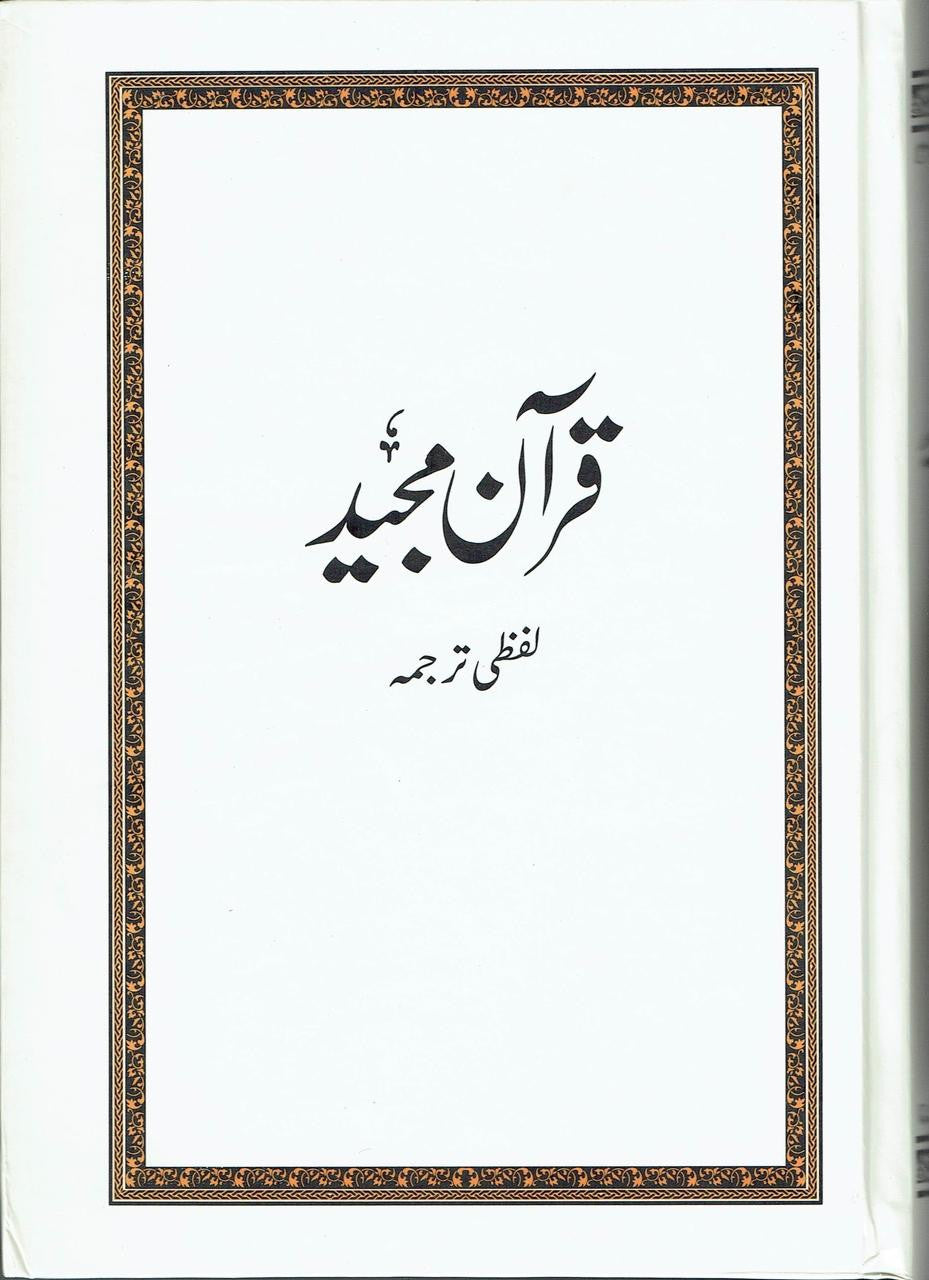 قرآن مجید
لفظی ترجمہ